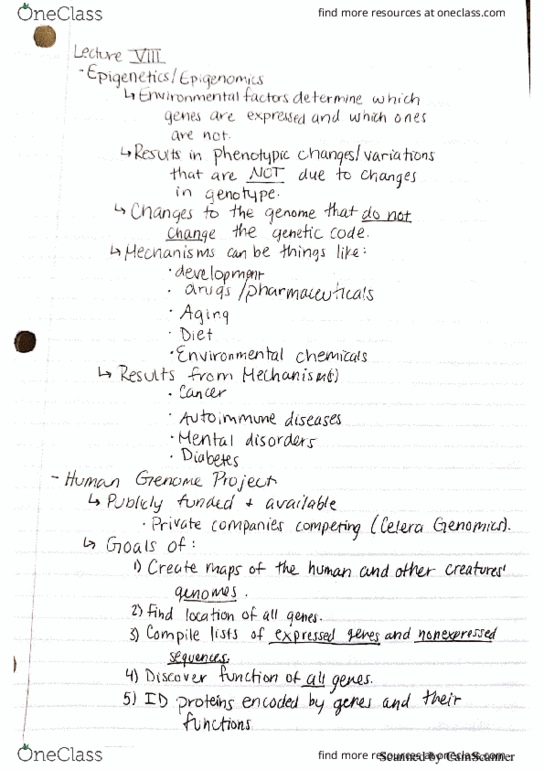 OneClass
find more resources at oneclass.com
Lecture VIII
- Epigenetics/Epigenomics
↳ Environmental factors determine which
genes are expressed and which ones
are not.
↳ Results in phenotypic changes/variations
that are NOT due to changes
in genotype.
↳ Changes to the genome that do not
change the genetic code.
↳ Mechanisms can be things like:
· development
· drugs/pharmaceuticals
· Aging
· Diet
· Environmental chemicals
↳ Results from Mechanism(s)
· Cancer
· Autoimmune diseases
· Mental disorders
· Diabetes
- Human Genome Project
↳ Publicly funded + available
· Private companies competing (Celera Genomics).
↳ Goals of:
1) Create maps of the human and other creatures'
genomes.
2) find location of all genes.
3) Compile lists of expressed genes and nonexpressed
sequences.
4) Discover function of all genes.
5) ID proteins encoded by genes and their
functions
OneClass
find more resources at oneclass.com
Scanned by CamScanner